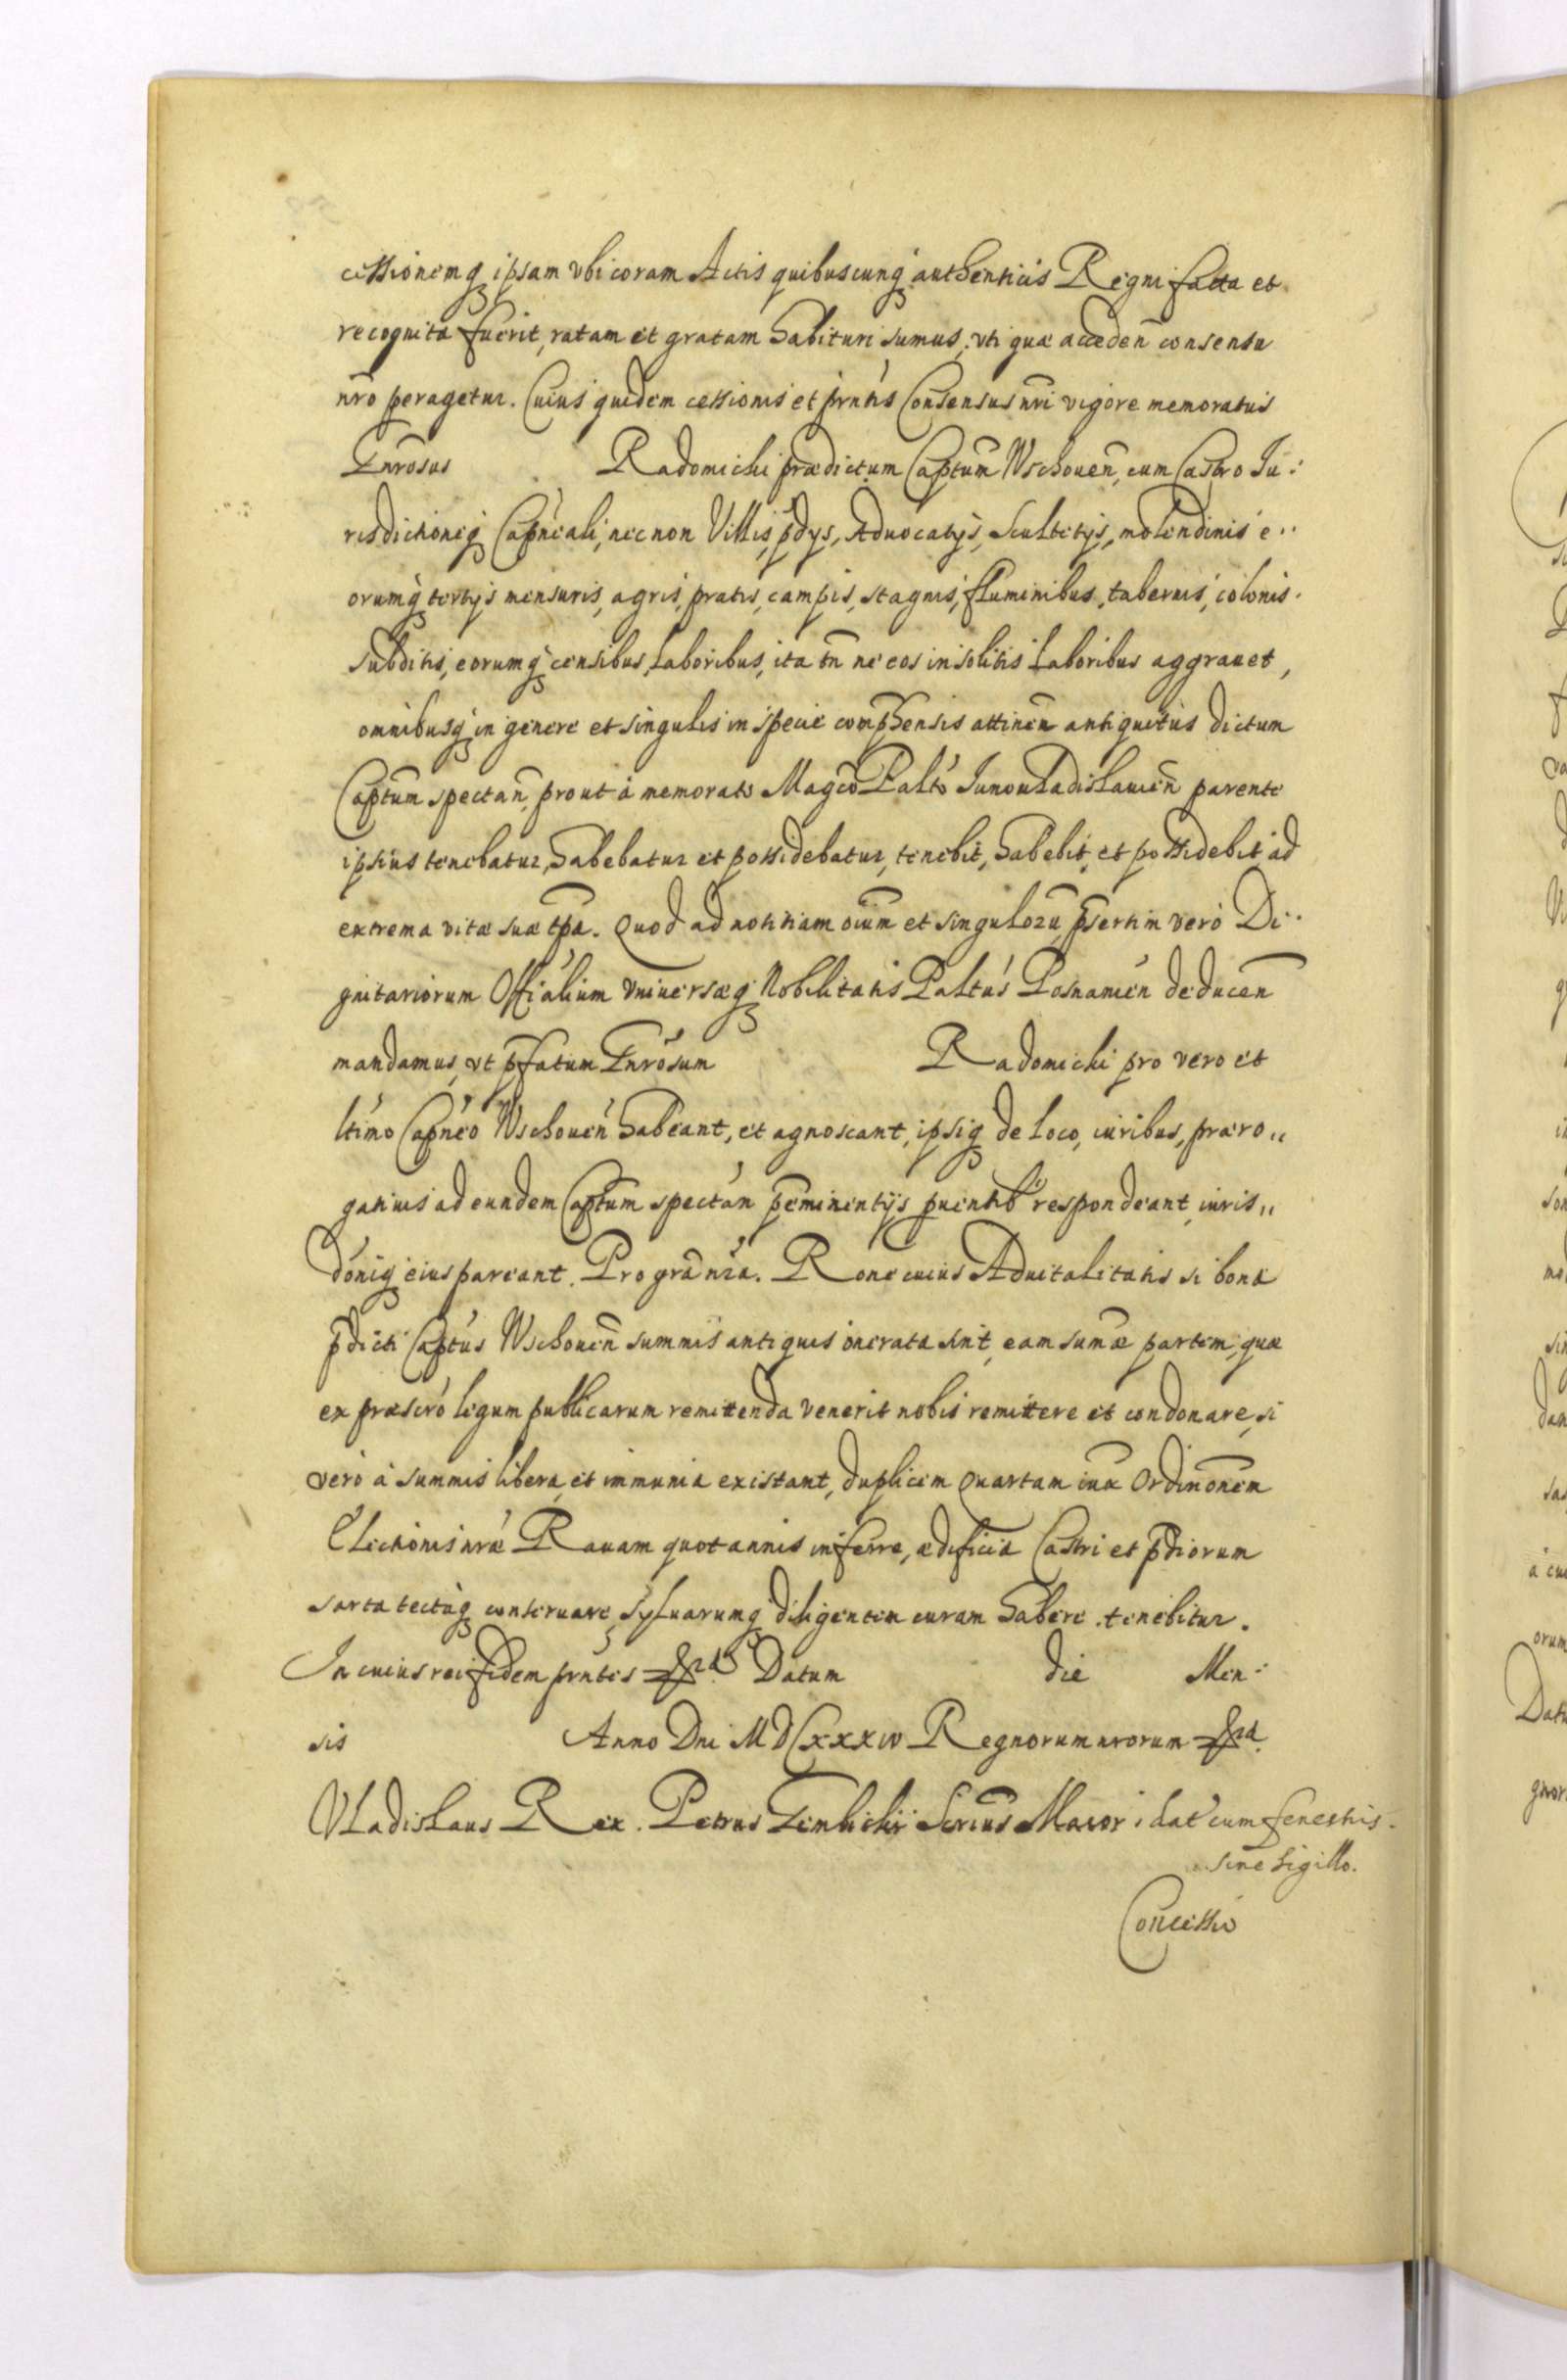 cessionemq₃ ipsam vbi coram Actis quibuscunq₃ authenticis Regni facta et
recognita fuerit, ratam et gratam habituri sumus, vti quæ acceden̄ consensu
nr̄o peragetur. Cuius quidem cessionis et pn̄tis Consensus nr̄i vigore memoratus
Gn̄rosus Radomicki prædictum Capt̄um Wschouen̄, cum Castro Ju:
risdictioneq₃ Capn̄eali, nec non Villis, p̄dys, Aduocatys, Scultetys, molendinis e..
orumq₃ tertys mensuris, agris, pratis, campis, stagnis, fluminibus, tabernis, colonis.
Subditis, eorumq₃ censibus, laboribus, ita tn̄ ne eos insolitis laboribus aggrauet,
omnibusq₃ in genere et singulis in specie comp̄hensis attinen̄ antiquitùs dictum
Capt̄um spectan̄, prout à memorato Magc̄o Palto Junouladislauien̄ parente
ipsius tenebatur, habebatur et possidebatur, tenebit, habebit, et possidebit ad
extrema vitæ suæ tp̄a. Quod ad notitiam oīum et singulorū p̄sertim verò Di..
gnitariorum Offiālium vniuersæq₃ Nobilitatis Paltūs Posnanien̄ deducen̄
mandamus, vt p̄fatum Gn̄rosum Radomicki pro vero et
ltīmo Capn̄eo Wschouen̄ habeant, et agnoscant, ipsiq₃ de loco, iuribus, præro„
gatiuis ad eundem Capt̄um spectan̄ p̄eminentijs puentib₉ respondeant iuris„
dōniq₃ eius pareant. Pro grā nr̄a. Rone cuius Aduitalitatis si bona
p̄dicti Captūs Wschouen̄ summis antiquis onerata sint, eam sum̄æ partem, quæ
ex præscrō legum publicarum remittenda venerit nobis remittere et condonare, si
verò à summis libera, et immunia existant, duplicem Quartam iux Ordinōnem
Electionis nr̄æ Rauam quotannis inferre, ædificia Castri et p̄diorum
sarta tectaq₃ conseruare, syluarumq₃ diligentem curam habere tenebitur.
In cuius rei fidem pn̄tes &ra Datum die Men:
sis Anno Dni MDCXXXIV Regnorum nrorum &ra.
Vladislaus Rex. Petrus Gembicki Secrius Maior i dat' cum fenestris.
sine sigillo.
Concessio